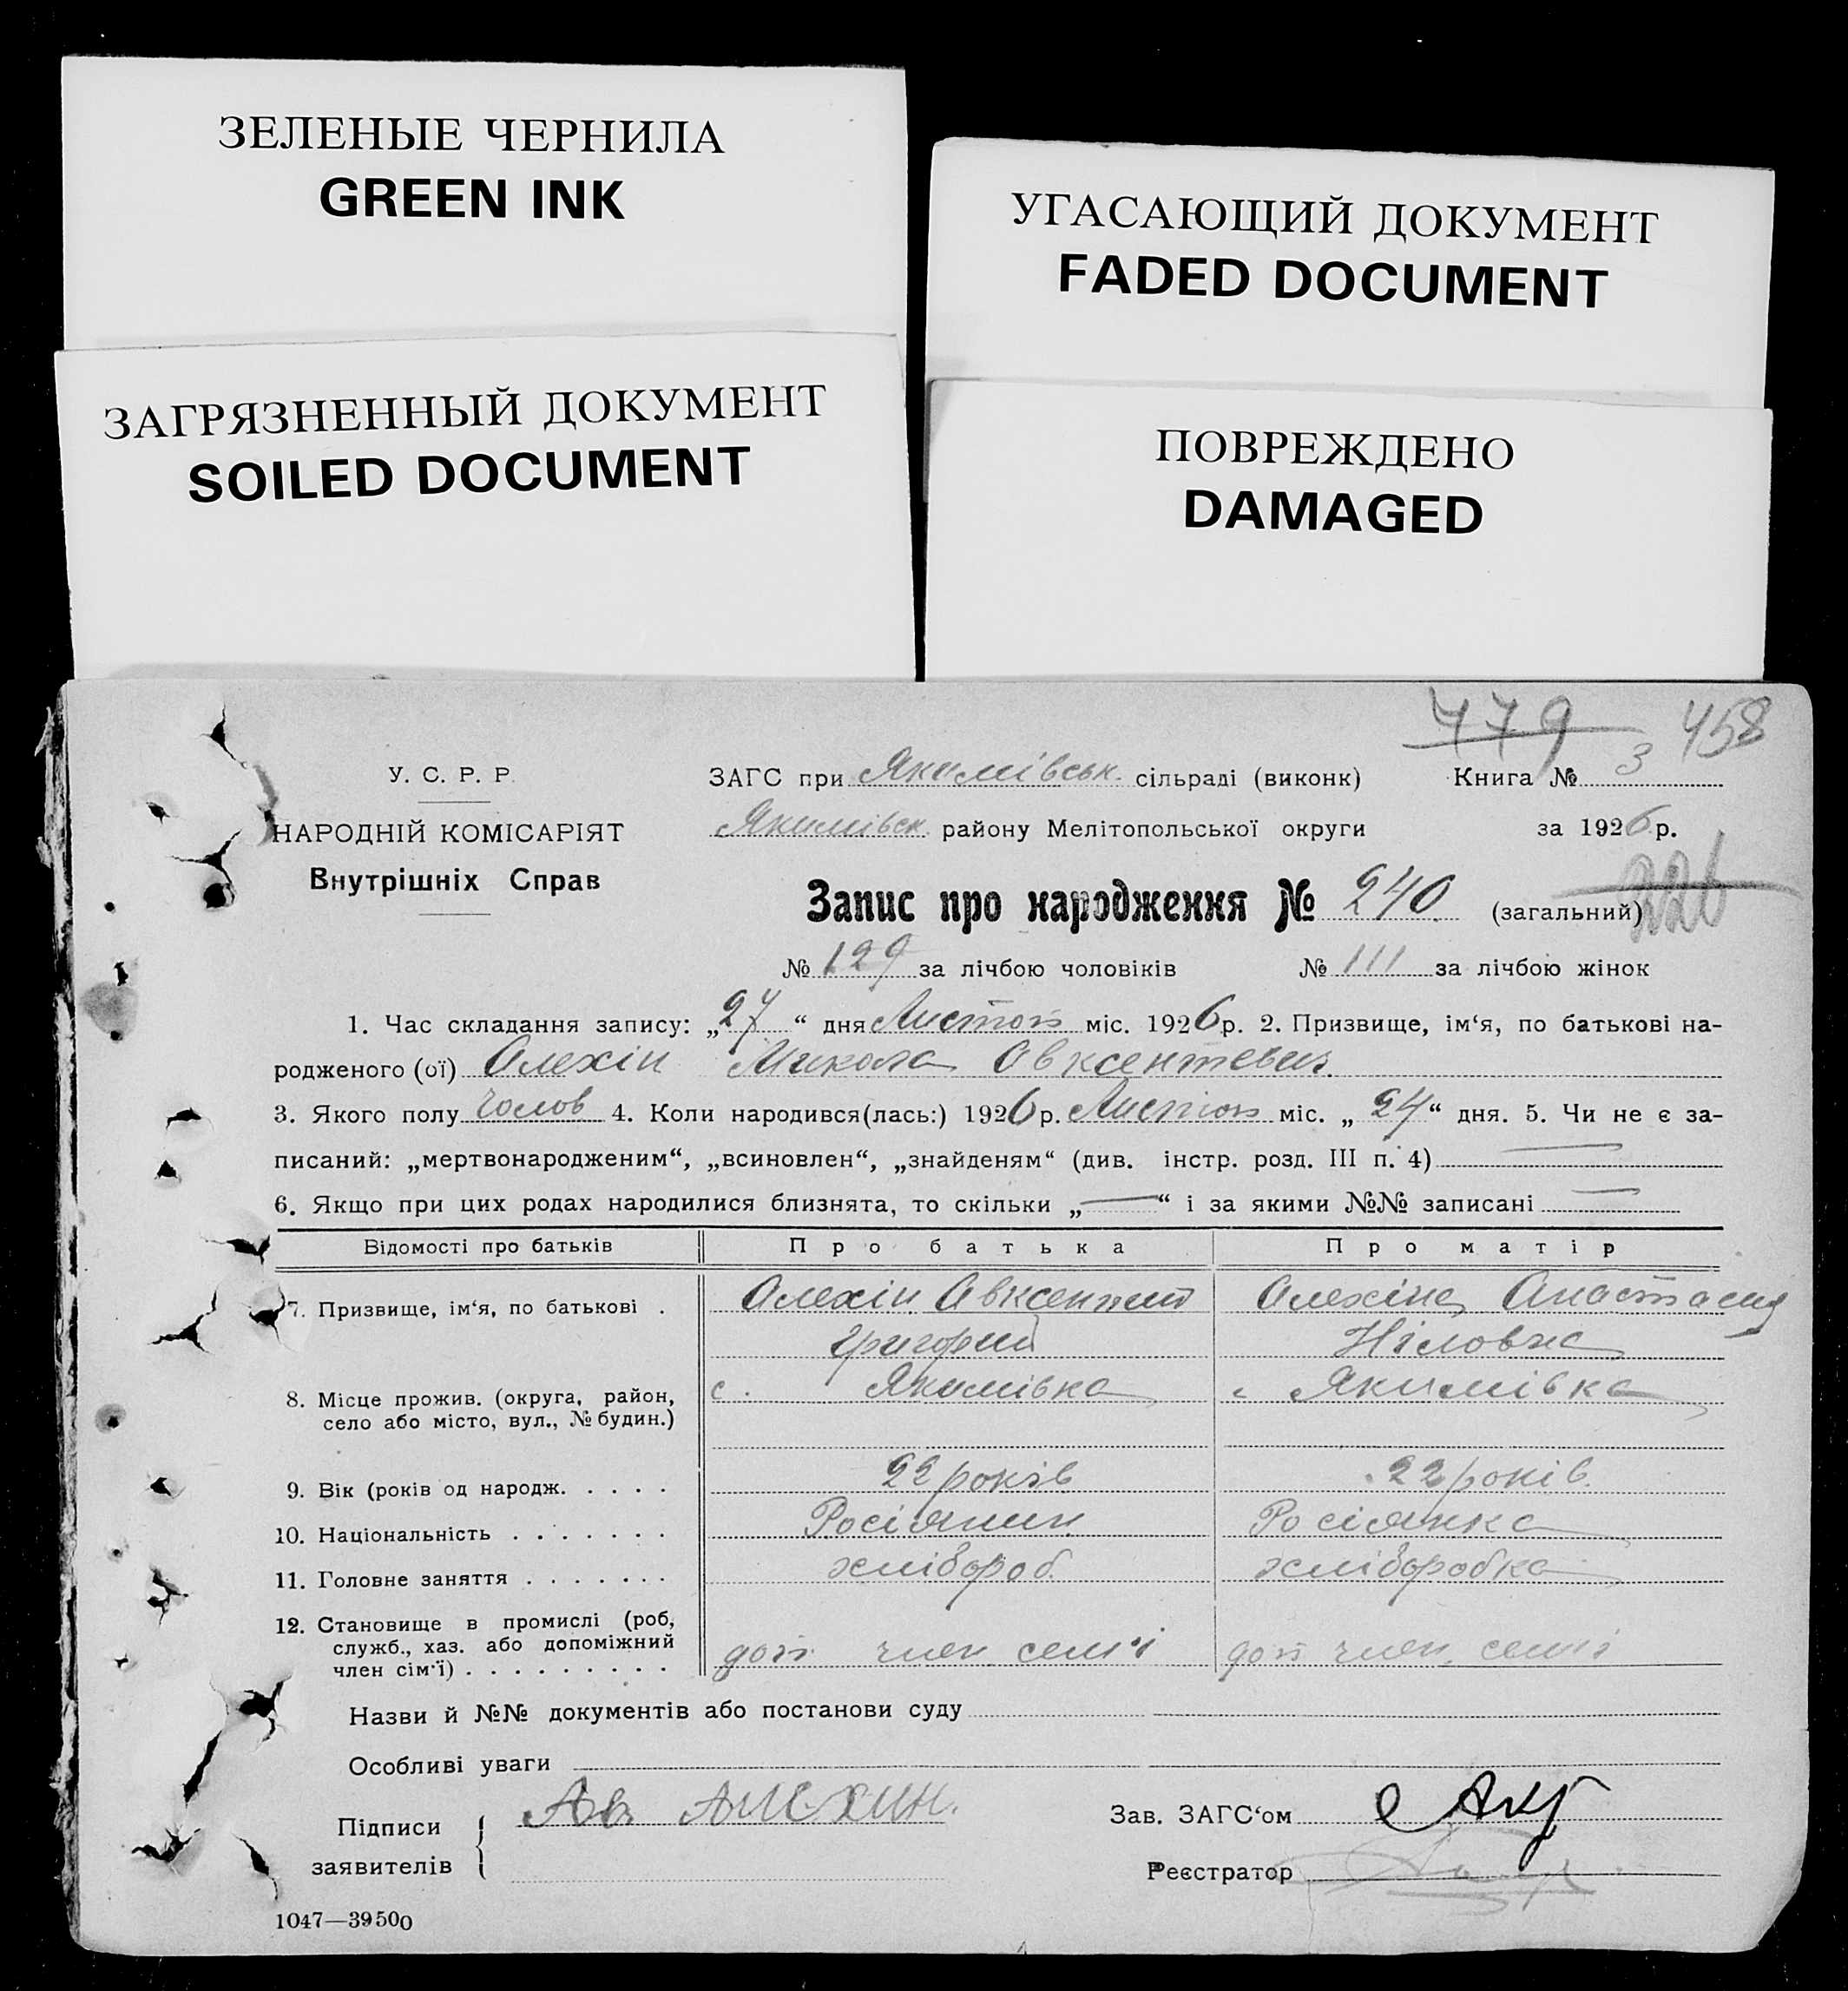 ЗЕЛЕНЫЕ ЧЕРНИЛА
GREEN INK
УГАСАЮЩИЙ ДОКУМЕНТ
FADED DOCUMENT
ЗАГРЯЗНЕННЫЙ ДОКУМЕНТ
SOILED DOCUMENT
ПОВРЕЖДЕНО
DAMAGED
479 458
У. С. Р. Р.
НАРОДНІЙ КОМІСАРІЯТ
Внутрішніх Справ
ЗАГС при Якимівськ. сільраді (виконк) Книга № 3
Якимівск району Мелітопольської округи за 1926 р.
226
Запис про народження № 240 (загальний)
№ 129 за лічбою чоловіків № 111 за лічбою жінок
1. Час складання запису: „27“ дня Листоп міс. 1926 р. 2. Призвище, ім‘я, по батькові на-
родженого (ої) Олехін Микола Овксентевич
3. Якого полу чолов 4. Коли народився(лась:) 1926 р. Листоп міс. „24“ дня. 5. Чи не є за-
писаний: „мертвонародженим“, „всиновлен“, „знайденям“ (див. інстр. розд. III п. 4) —
6. Якщо при цих родах народилися близнята, то скільки „—“ і за якими №№ записані —
Відомості про батьків Про батька Про матір
7. Призвище, ім‘я, по батькові . Олехін Овксентий Олехіна Анастасия
Григорий Ніловна
8. Місце прожив. (округа, район, с. Якимівка с Якимівка
село або місто, вул., № будин.)
9. Вік (років од народж. . . . . 22 років 22 років.
10. Національність . . . . . . . Росіянин Росіянка
11. Головне заняття . . . . . . . хлібороб. хліборобка
12. Становище в промислі (роб,
служб., хаз. або допоміжний
член сім'ї) . . . . . . . . . доп член семі доп член. семі
Назви й №№ документів або постанови суду
Особливі уваги
Підписи
заявителів
Ав Алехин.
Зав. ЗАГС‘ом
Реєстратор
1047—39500